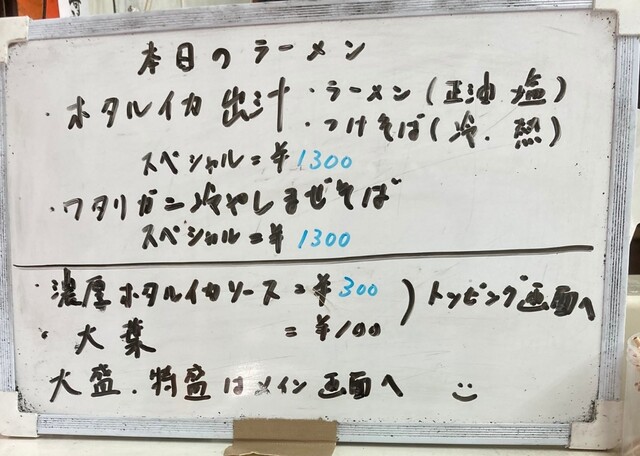 本日のラーメン
・ホタルイカ出汁 ・ラーメン(正油 塩)
・つけそば(冷.熱)
スペシャル=¥1300
・ワタリガニ冷やしまぜそば
スペシャル=¥1300
・濃厚ホタルイカソース=¥300 ) トッピング画面へ
・大葉 =¥100
大盛.特盛はメイン画面へ